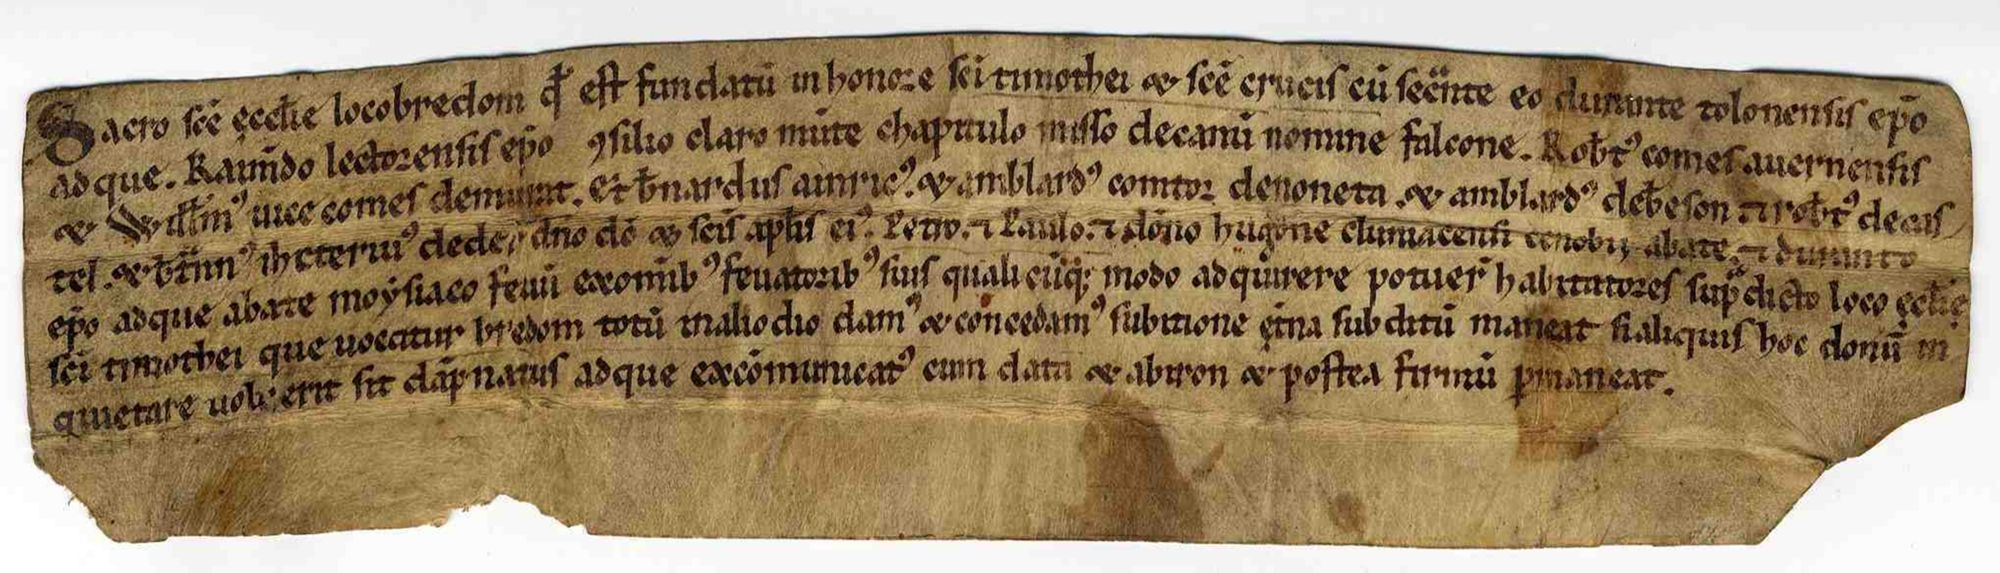 Sacro scē ęccłie locobredom qđ est fundatū in honore scī timothei & scē crucis cū secͣnte eo durante tolonensis ep̄o
ad que. Raim̄do lectorensis ep̄o ꝯsilio claro mūte chapitulo misso decanū nomine falcone. Rob̄tꝰ comes auernensis
& Willm̄ꝰ uice comes demurat. et b̄nardus ainricꝰ. & amblardꝰ comtor denoneta. & amblardꝰ deb̄eson ⁊ rob̄tꝰ decas
tel. & b̄tr̄nnꝰ ihcteriuꝰ deder̄ dn̄o dō & scīs apl̄is eiꝰ. Petro. ⁊ Paulo. ⁊ dōno hugone cluniacensi cenobij abate. ⁊ duranto
ep̄o ad que abate moẏsiaco feuū exomīb᷒ feuatorib᷒ siuis quali cūq; modo adquirere potuer̄ habitatores supͣdicto loco ęccłię
scī timothei que uocatur bredom totū inaliodio damꝰ & concedamꝰ subitione ęt̄na subditū maneat si aliquis hoc donū in
quietare uoluerit sit dāp̄natus ad que excōmunicatꝰ cum datā & abiron & postea firmū ꝑmaneat.